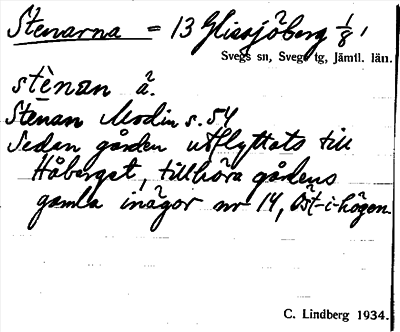 Stenarna = 13 Glissjöberg 1/8
Svegs sn, Svegs tg, Jämtl. län.
stènan ä.
Stenan Modin s. 54
Sedan gården utflyttats till
Håberget, tillhöra gårdens
gamla inägor nr 14, Öst-i-högen.
C. Lindberg 1934.